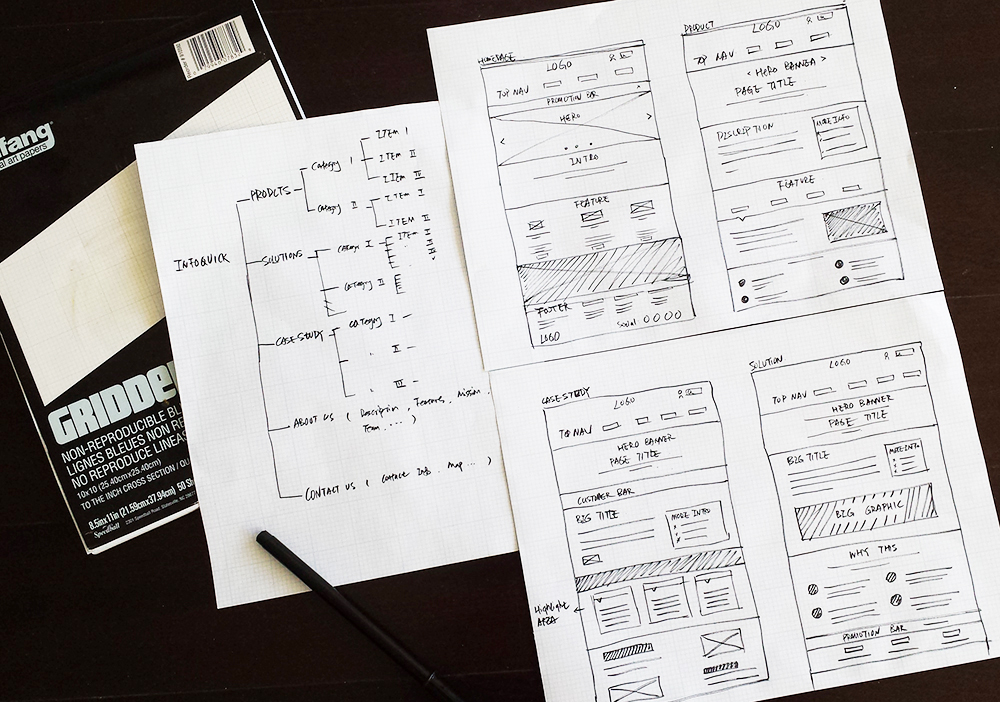 fang
al art papers
GRIDDE
NON-REPRODUCIBLE BL
LIGNES BLEUES NON RE
NO REPRODUCE LINEAS
10x10 (25.40cmx25.40cm)
TO THE INCH CROSS SECTION / OU
8.5inx11in (21.59cmx37.94cm) 50 Sh
Speedball
INFOQUICK
PRODCTS
Category I
ITEM I
ITEM II
ITEM III
Category II
ITEM I
ITEM II
SOLUTIONS
Category I
ITEM I
II
Category II
CASE STUDY
Category I
II
III
ABOUT US ( Description, Features, Mission,
Team .... )
CONTACT US ( Contact Info. Map ... )
HOMEPAGE
LOGO
TOP NAV
PROMOTION BAR
HERO
< >
INTRO
FEATURE
FOOTER
LOGO
Social
PRODUCT
LOGO
TOP NAV
< HERO BANNER >
PAGE TITLE
DISCRIPTION
MORE INFO
FEATURE
CASE STUDY
LOGO
TOP NAV
HERO BANNER
PAGE TITLE
CUSTOMER BAR
BIG TITLE
MORE INFO
Highlight
AREA
SOLUTION
LOGO
TOP NAV
HERO BANNER
PAGE TITLE
BIG TITLE
MORE INFO
BIG GRAPHIC
WHY THIS
PROMOTION BAR